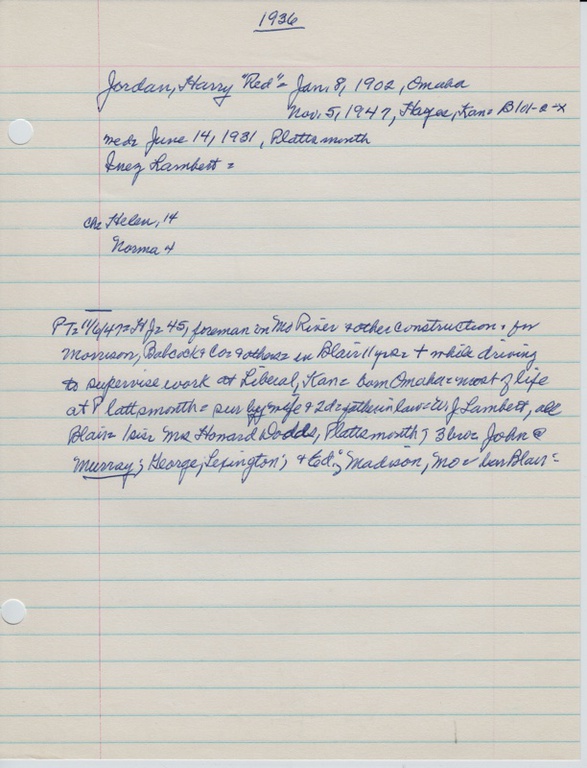 1936
Jordan, Harry "Red" = Jan. 8, 1902, Omaha
Nov. 5, 1947, Hayes, Kan= B101-2-X
med= June 14, 1931, Plattsmonth
Inez Lambert =
Ch= Helen, 14
Norma 4
PT= 11/6/47= HJ= 45, foreman on Mo River & other construction. for
Morrison, Babcock & Co= & others= in Blair 11 yrs= + while driving
to supervise work at Liberal, Kan= born Omaha= most of life
at Plattsmonth= sur by wife & 2d= father in law= J. Lambert, all
Blair= 1 sis= Mrs Howard Dodds, Plattsmonth; 3 bro= John @
Murray; George, Lexington; & Ed., Madison, Mo= bur Blair=